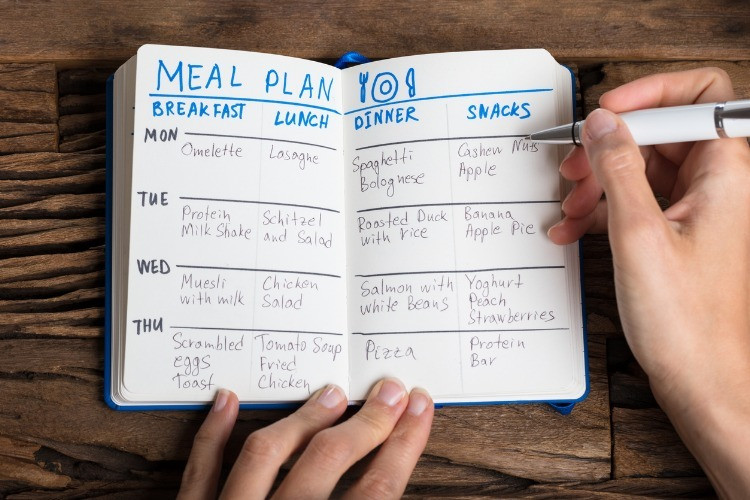 MEAL PLAN
BREAKFAST LUNCH DINNER SNACKS
MON
Omelette
Lasagne
Spaghetti
Bolognese
Cashew Nuts
Apple
TUE
Protein
Milk Shake
Schitzel
and Salad
Roasted Duck
with rice
Banana
Apple Pie
WED
Muesli
with milk
Chicken
Salad
Salmon with
white Beans
Yoghurt
Peach
Strawberries
THU
Scrambled
eggs
Toast
Tomato Soup
Fried
Chicken
Pizza
Protein
Bar